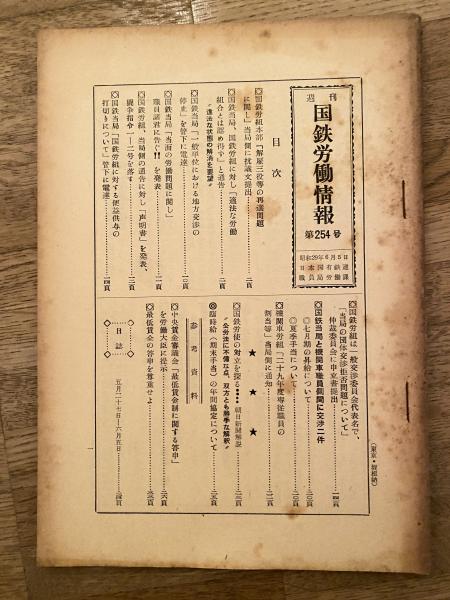 週刊
国鉄労働情報
第254号
昭和29年6月5日
日本国有鉄道
職員局労働課
目次
◎国鉄労組本部「解雇三役等の再選問題
に関し」当局側に抗議文提出……二頁
◎国鉄当局、国鉄労組に対し「適法な労働
組合とは認め得ず」と通告……二頁
〝違法な状態の解消を要望〟
◎国鉄当局「一般単位における地方交渉の
停止」を管下に電達……三頁
◎国鉄当局「当面の労働問題に関し」
職員諸君に告ぐ!!を発表
◎国鉄労組、当局側の通告に対し「声明書」を発表、
闘争指令一一二号を落す
◎国鉄当局「国鉄労組に対する便益供与の
打切りについて」管下に電達……一四頁
◎国鉄労組は一般交渉委員会代表名で、
「当局の団体交渉拒否問題について」
仲裁委員会に申立書提出……一四頁
◎国鉄当局と機関車職員側間に交渉二件
◇七月期の昇給について……二〇頁
◇夏季手当について……二一頁
◎機関車労組「二十九年度専従職員の
割当等」当局側に通知……二二頁
★★★
◎国鉄労使の対立を探る……朝日新聞解説
〝公労法に不備な点、双方とも勝手な解釈〟
◎臨時給(期末手当)の年間協定について……二五頁
参考資料
◎中央賃金審議会「最低賃金制に関する答申」
を労働大臣に提示……二六頁
◎最低賃金の答申を尊重せよ……三三頁
◇日誌◇
五月二十七日—六月五日……三四頁